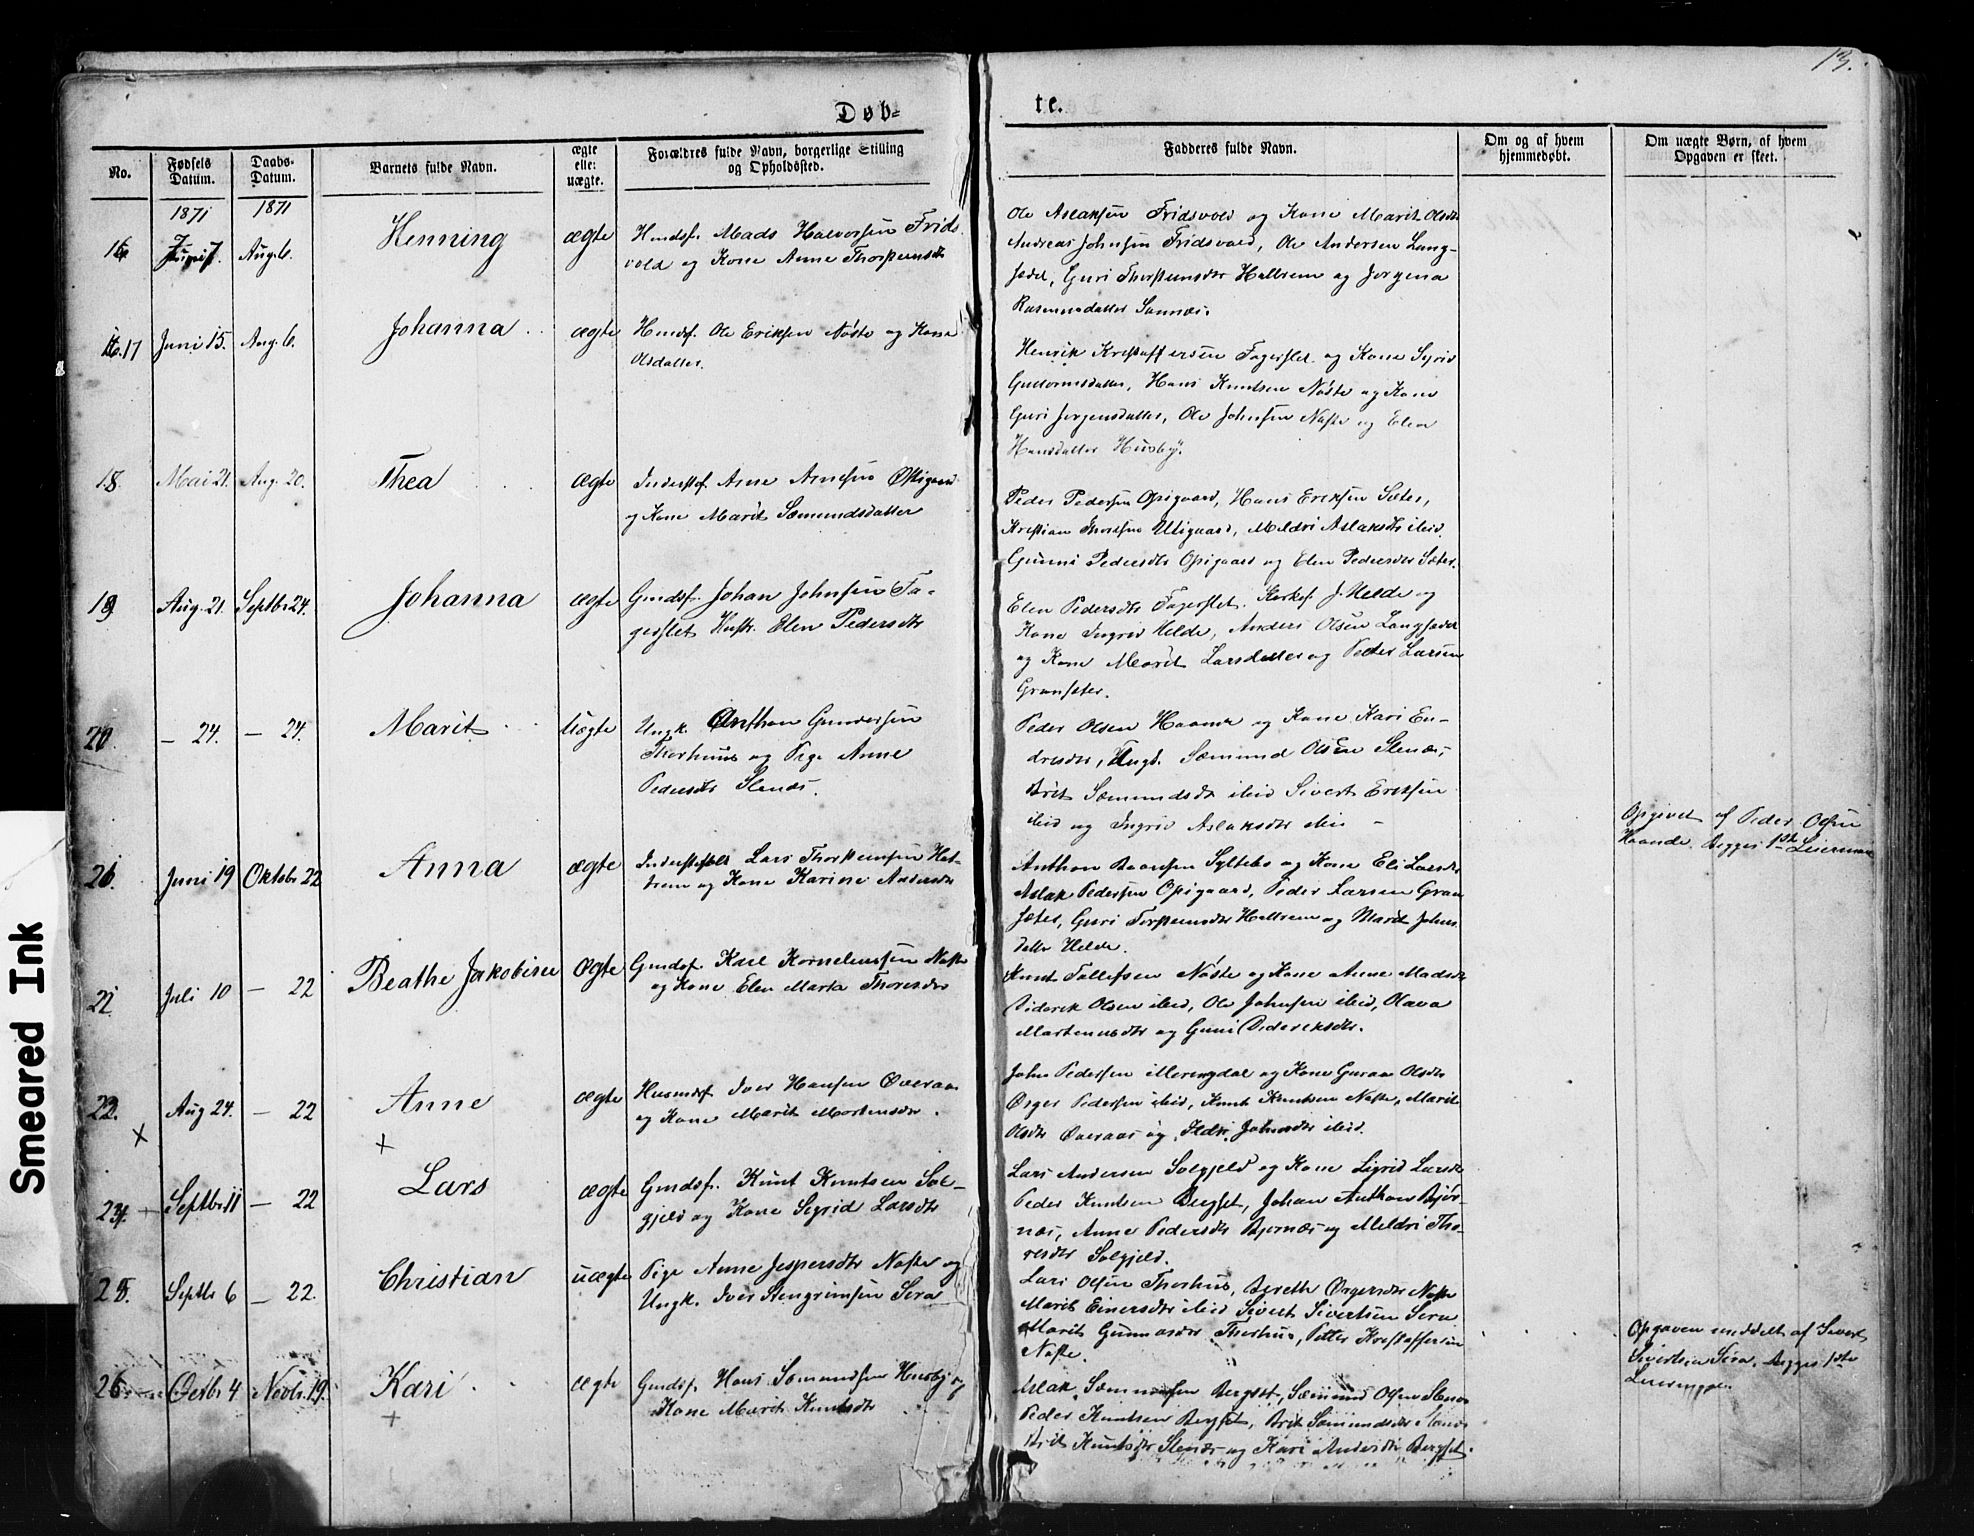 13.
Døb-
te.
No.
Fødsels Datum.
Daabs- Datum.
Barnets fulde Navn.
ægte eller uægte.
Forældres fulde Navn, borgerlige Stilling og Opholdssted.
Fadderes fulde Navn.
Om og af hvem hjemmedøbt.
Om uægte Børn, af hvem Opgaven er skeet.
1871 1871
16 Juni 7. Aug. 6. Henning ægte Huusf. Mads Halvorsen Frids
vold og Kone Anne Thorsteinsdtr
Ole Aslaksen Fridsvold og Kone Marit Olsdtr
Andreas Johnsen Fridsvold, Ole Andersen Lang-
sædet, Guri Thorsteinsdtr Heltrem og Jørgena
Rasmusdatter Sannæs.
17 Juni 15. Aug. 6. Johanna ægte Huusf. Ole Eriksen Nøste og Kone
Olsdatter.
Henrik Kristoffersen Fagerslet og Kone Sigrid
Guttormsdatter, Hans Knutsen Nøste og Kone
Guri Jørgensdatter, Ole Johnsen Nøste og Elen
Hansdatter Husby.
18. Mai 21. Aug. 20. Thea ægte Inderstf. Arne Arnesen
og Kone Marit Sæmundsdatter
Peder Pedersen Opigaard, Hans Eriksen Sæter,
Kristian Thoresen Utigaard, Meldri Aslaksdtr ibid.
Gunni Pedersdtr Opigaard og Elen Pedersdtr Sæter.
19 Aug. 21. Septbr 24. Johanna ægte Gmdsf. Johan Johnsen Fa-
gerslet Hustr. Elen Pedersdtr
Elen Pedersdtr Fagerslet. Kirks. J. Helde og
Kone Ingrid Helde, Anders Olsen Langsædet
og Kone Marit Larsdatter og Petter Larsen
Gransæter.
20. — 24. — 24. Marit Uægte Ungk. Anthon Gundersen
Thorhuus og Pige Anne
Pedersdtr Stenæs.
Peder Olsen Haanæ og Kone Kari En-
dresdtr, Ungk. Sæmund Olsen Stenæs,
Brit Sæmundsdtr ibid Sivert Eriksen
ibid og Ingrid Aslaksdtr ibid —
Opgivet af Peder Olsen
Haande. Begges 1ste Leiermaal
21. Juni 19 Oktobr 22 Anna ægte Inderstfolk Lars Thorsteinsen Hel-
trem og Kone Karine Andersdtr
Anthon Baarsen Syltebø og Kone Eli Larsdtr
Aslak Pedersen Opigaard, Peder Larsen Gran
sæter, Guri Torsteinsdtr Heltrem og Marit Johns
datter Helde.
22 Juli 10 — 22 Beathe Jakobine ægte Gmdsf. Karl Kornelinssen Nøste
og Kone Elen Marta Thoresdtr
Knut Tollefsen Nøste og Kone Anne Madsdtr
Diderik Olsen ibid, Ole Johnsen ibid, Olava
Martinusdtr og Guni Dideriksdtr.
22. Aug 24. — 22 Anne ægte Husmdsf. Iver Hansen Øveraas
og Kone Marit Mortensdtr.
John Pedersen Meringdal og Kone Guraa Olsdtr
Ørger Pedersen ibid, Knut Knutsen Nøste, Marit
Olsdtr Øveraas og Ildri Johnsdtr ibid.
+ +
24. Septbr 11 — 22 Lars ægte Gmdsf. Knut Knutsen Sol-
gjeld og Kone Sigrid Larsdtr
Lars Andersen Solgjeld og Kone Sigrid Larsdtr
Peder Knutsen Bergset, Johan Anthon Bjør-
næs, Anne Pedersdtr Bjørnæs og Meldri Tho-
resdtr Solgjeld.
25. Septbr 6 — 22. Christian uægte Pige Anne Jespersdtr Nøste og
Ungk. Iver Stengrimsen Sira
Lars Olsen Thorhus, Bereth Ørgersdtr Nøste
Marit Einersdtr ibid Sivert Sivertsen Sira
Marit Gunnarsdtr Thorhus, Petter Kristoffersen
Nøste.
Opgaven meddelt af Sivert
Sivertsen Sira. Begges 1ste
26. Octbr 4 Novbr. 19. Kari ægte Gmdsf. Hans Sæmundsen Husby og
Kone Marit Knutsdtr
+
Aslak Sæmundsen Bergset, Sæmund Olsen Stenæs
Peder Knutsen Bergset, Brit Sæmundsdtr Stenæs
Brit Knutsdtr Stenæs og Kari Andersdtr Bergset.
Smeared Ink